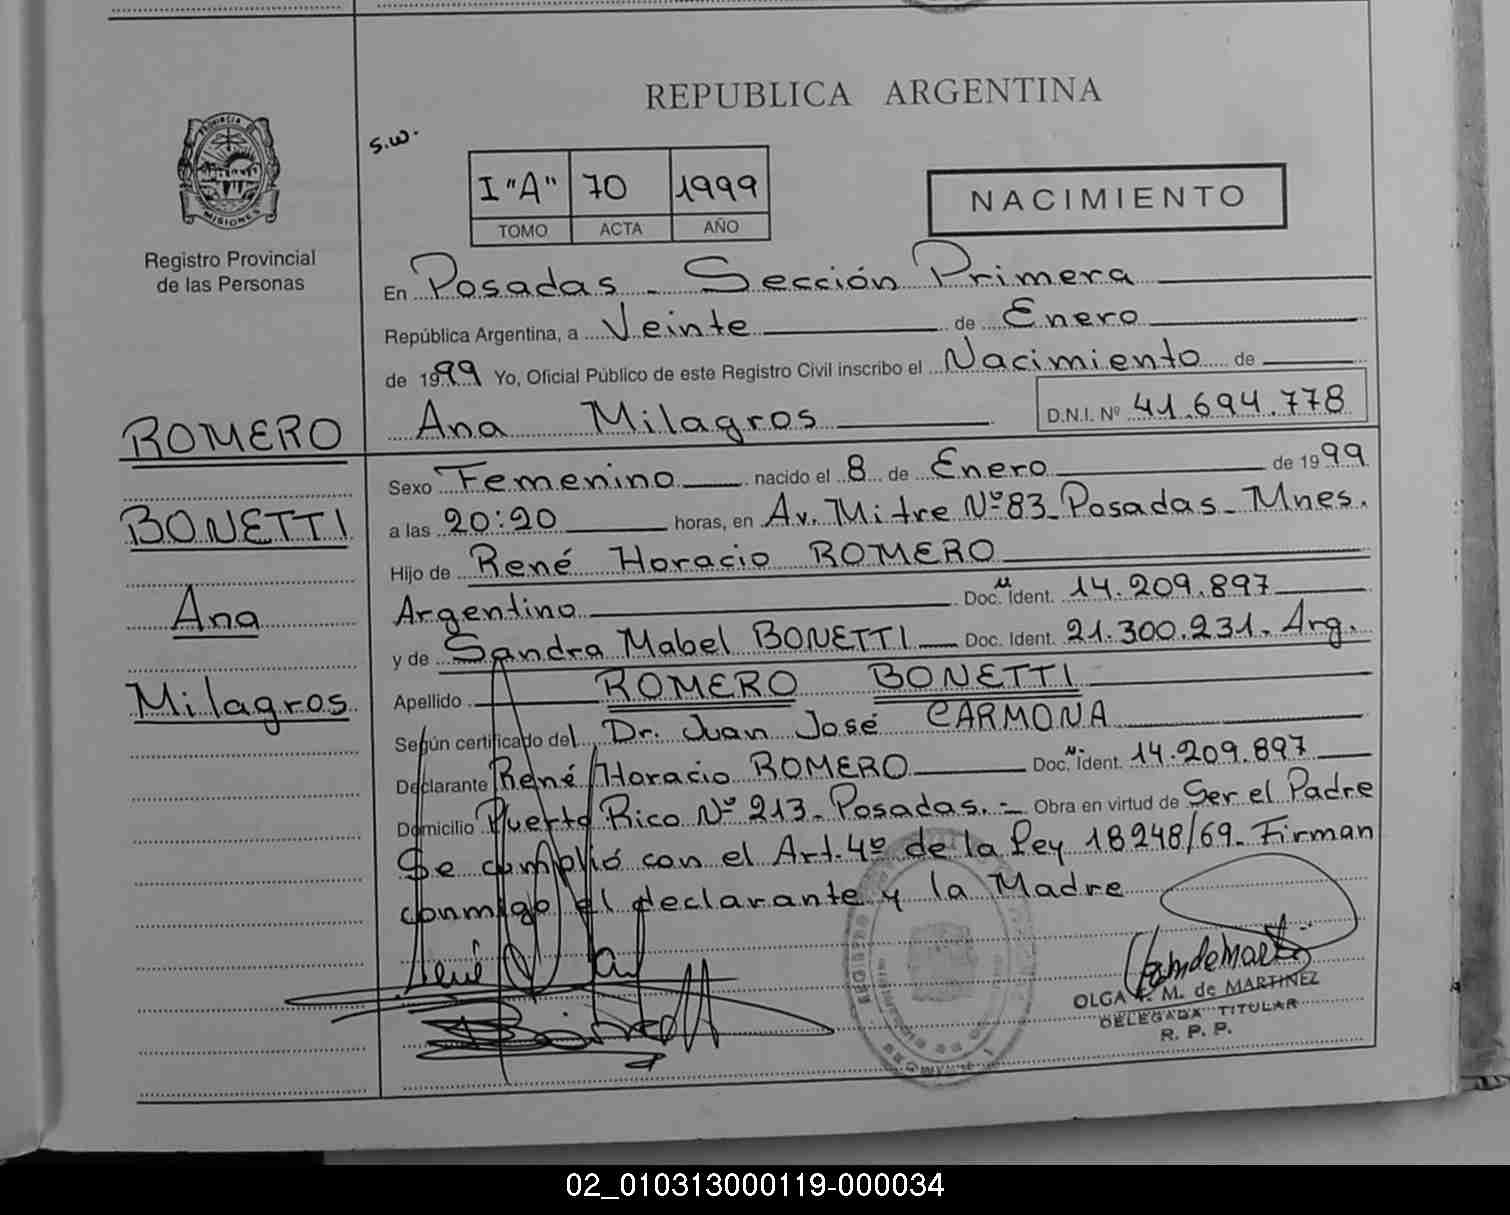 REPUBLICA ARGENTINA
S.W.
PROVINCIA DE
MISIONES
Registro Provincial
de las Personas
I "A" 70 1999
TOMO ACTA AÑO
NACIMIENTO
En Posadas - Sección Primera
República Argentina, a Veinte de Enero
de 1999 Yo, Oficial Público de este Registro Civil inscribo el Nacimiento de
Ana Milagros D.N.I. Nº 41.694.778
ROMERO
BONETTI
Ana
Milagros
Sexo Femenino nacido el 8 de Enero de 1999
a las 20:20 horas, en Av. Mitre Nº 83 - Posadas - Mnes.
Hijo de René Horacio ROMERO
Argentino Doc. M. Ident. 14.209.897
y de Sandra Mabel BONETTI Doc. Ident. 21.300.231. Arg.
Apellido ROMERO BONETTI
Según certificado del Dr. Juan José CARMONA
Declarante René Horacio ROMERO Doc. N. Ident. 14.209.897
Domicilio Puerto Rico Nº 213 - Posadas. - Obra en virtud de Ser el Padre
Se cumplió con el Art. 4º de la Ley 18248/69 - Firman
conmigo el declarante y la Madre
OLGA M. de MARTINEZ
DELEGADA TITULAR
R. P. P.
02_010313000119-000034